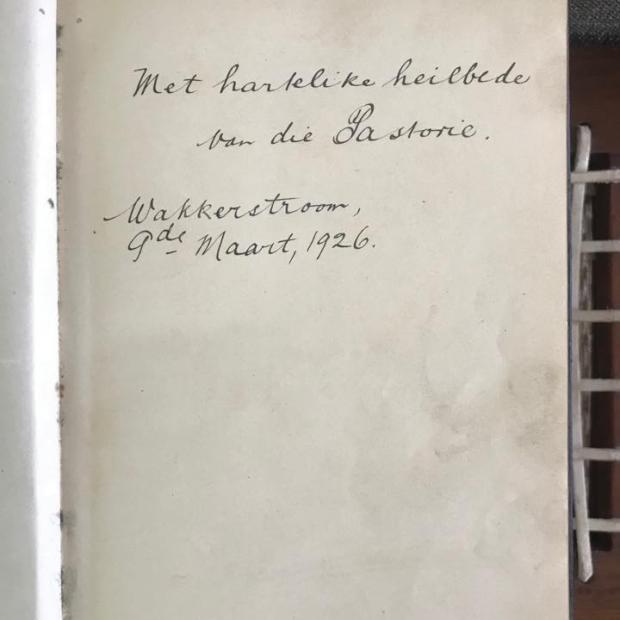 Met hartelike heilbede
van die Pastorie.
Wakkerstroom,
9de Maart, 1926.